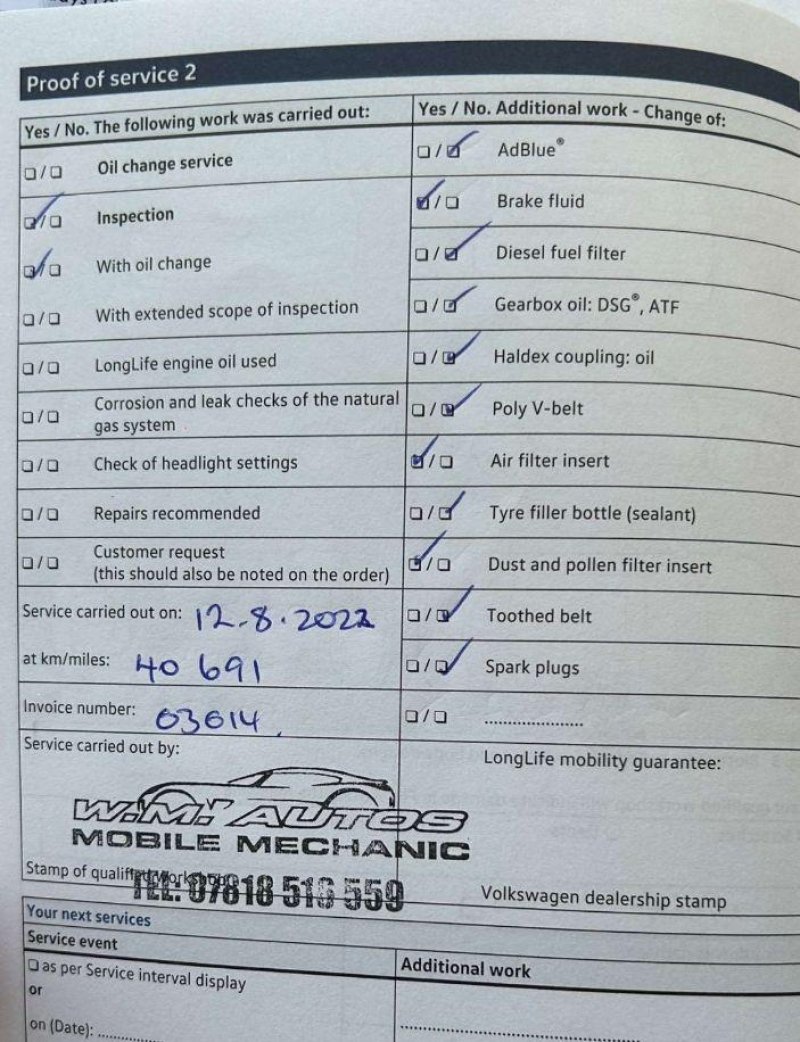 Proof of service 2
Yes / No. The following work was carried out:
Oil change service
Inspection
With oil change
With extended scope of inspection
LongLife engine oil used
Corrosion and leak checks of the natural
gas system
Check of headlight settings
Repairs recommended
Customer request
(this should also be noted on the order)
Service carried out on: 12-8.2022
at km/miles: 40 691
Invoice number: 03014
Service carried out by:
W.M. AUTOS
MOBILE MECHANIC
Stamp of qualified workshop
TEL: 07818 516 559
Yes / No. Additional work - Change of:
AdBlue®
Brake fluid
Diesel fuel filter
Gearbox oil: DSG®, ATF
Haldex coupling: oil
Poly V-belt
Air filter insert
Tyre filler bottle (sealant)
Dust and pollen filter insert
Toothed belt
Spark plugs
LongLife mobility guarantee:
Volkswagen dealership stamp
Your next services
Service event
as per Service interval display
or
on (Date):
Additional work